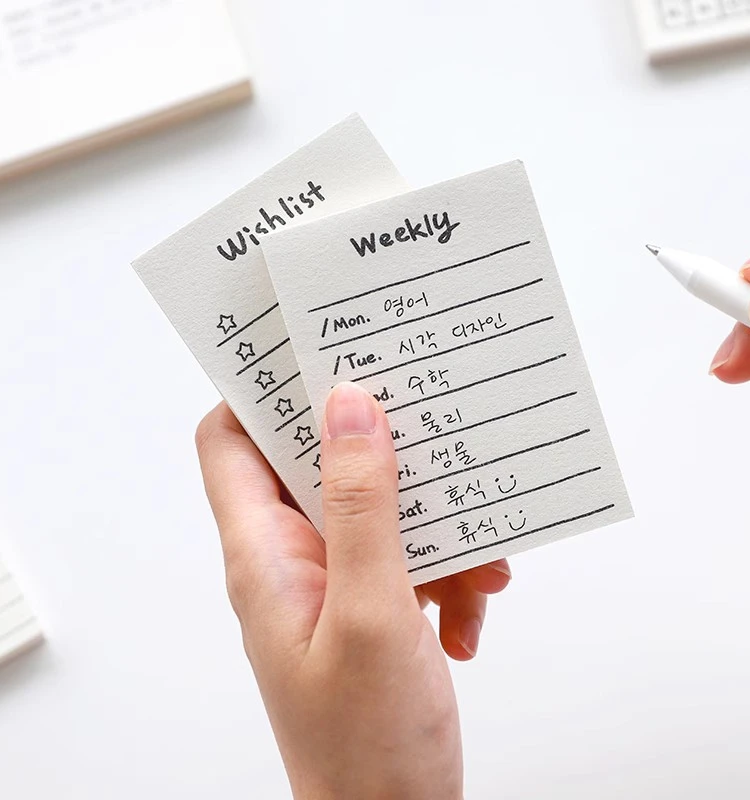 Wishlist
Weekly
/Mon. 영어
/Tue. 시각 디자인
d. 수학
u. 물리
ri. 생물
Sat. 휴식
Sun. 휴식